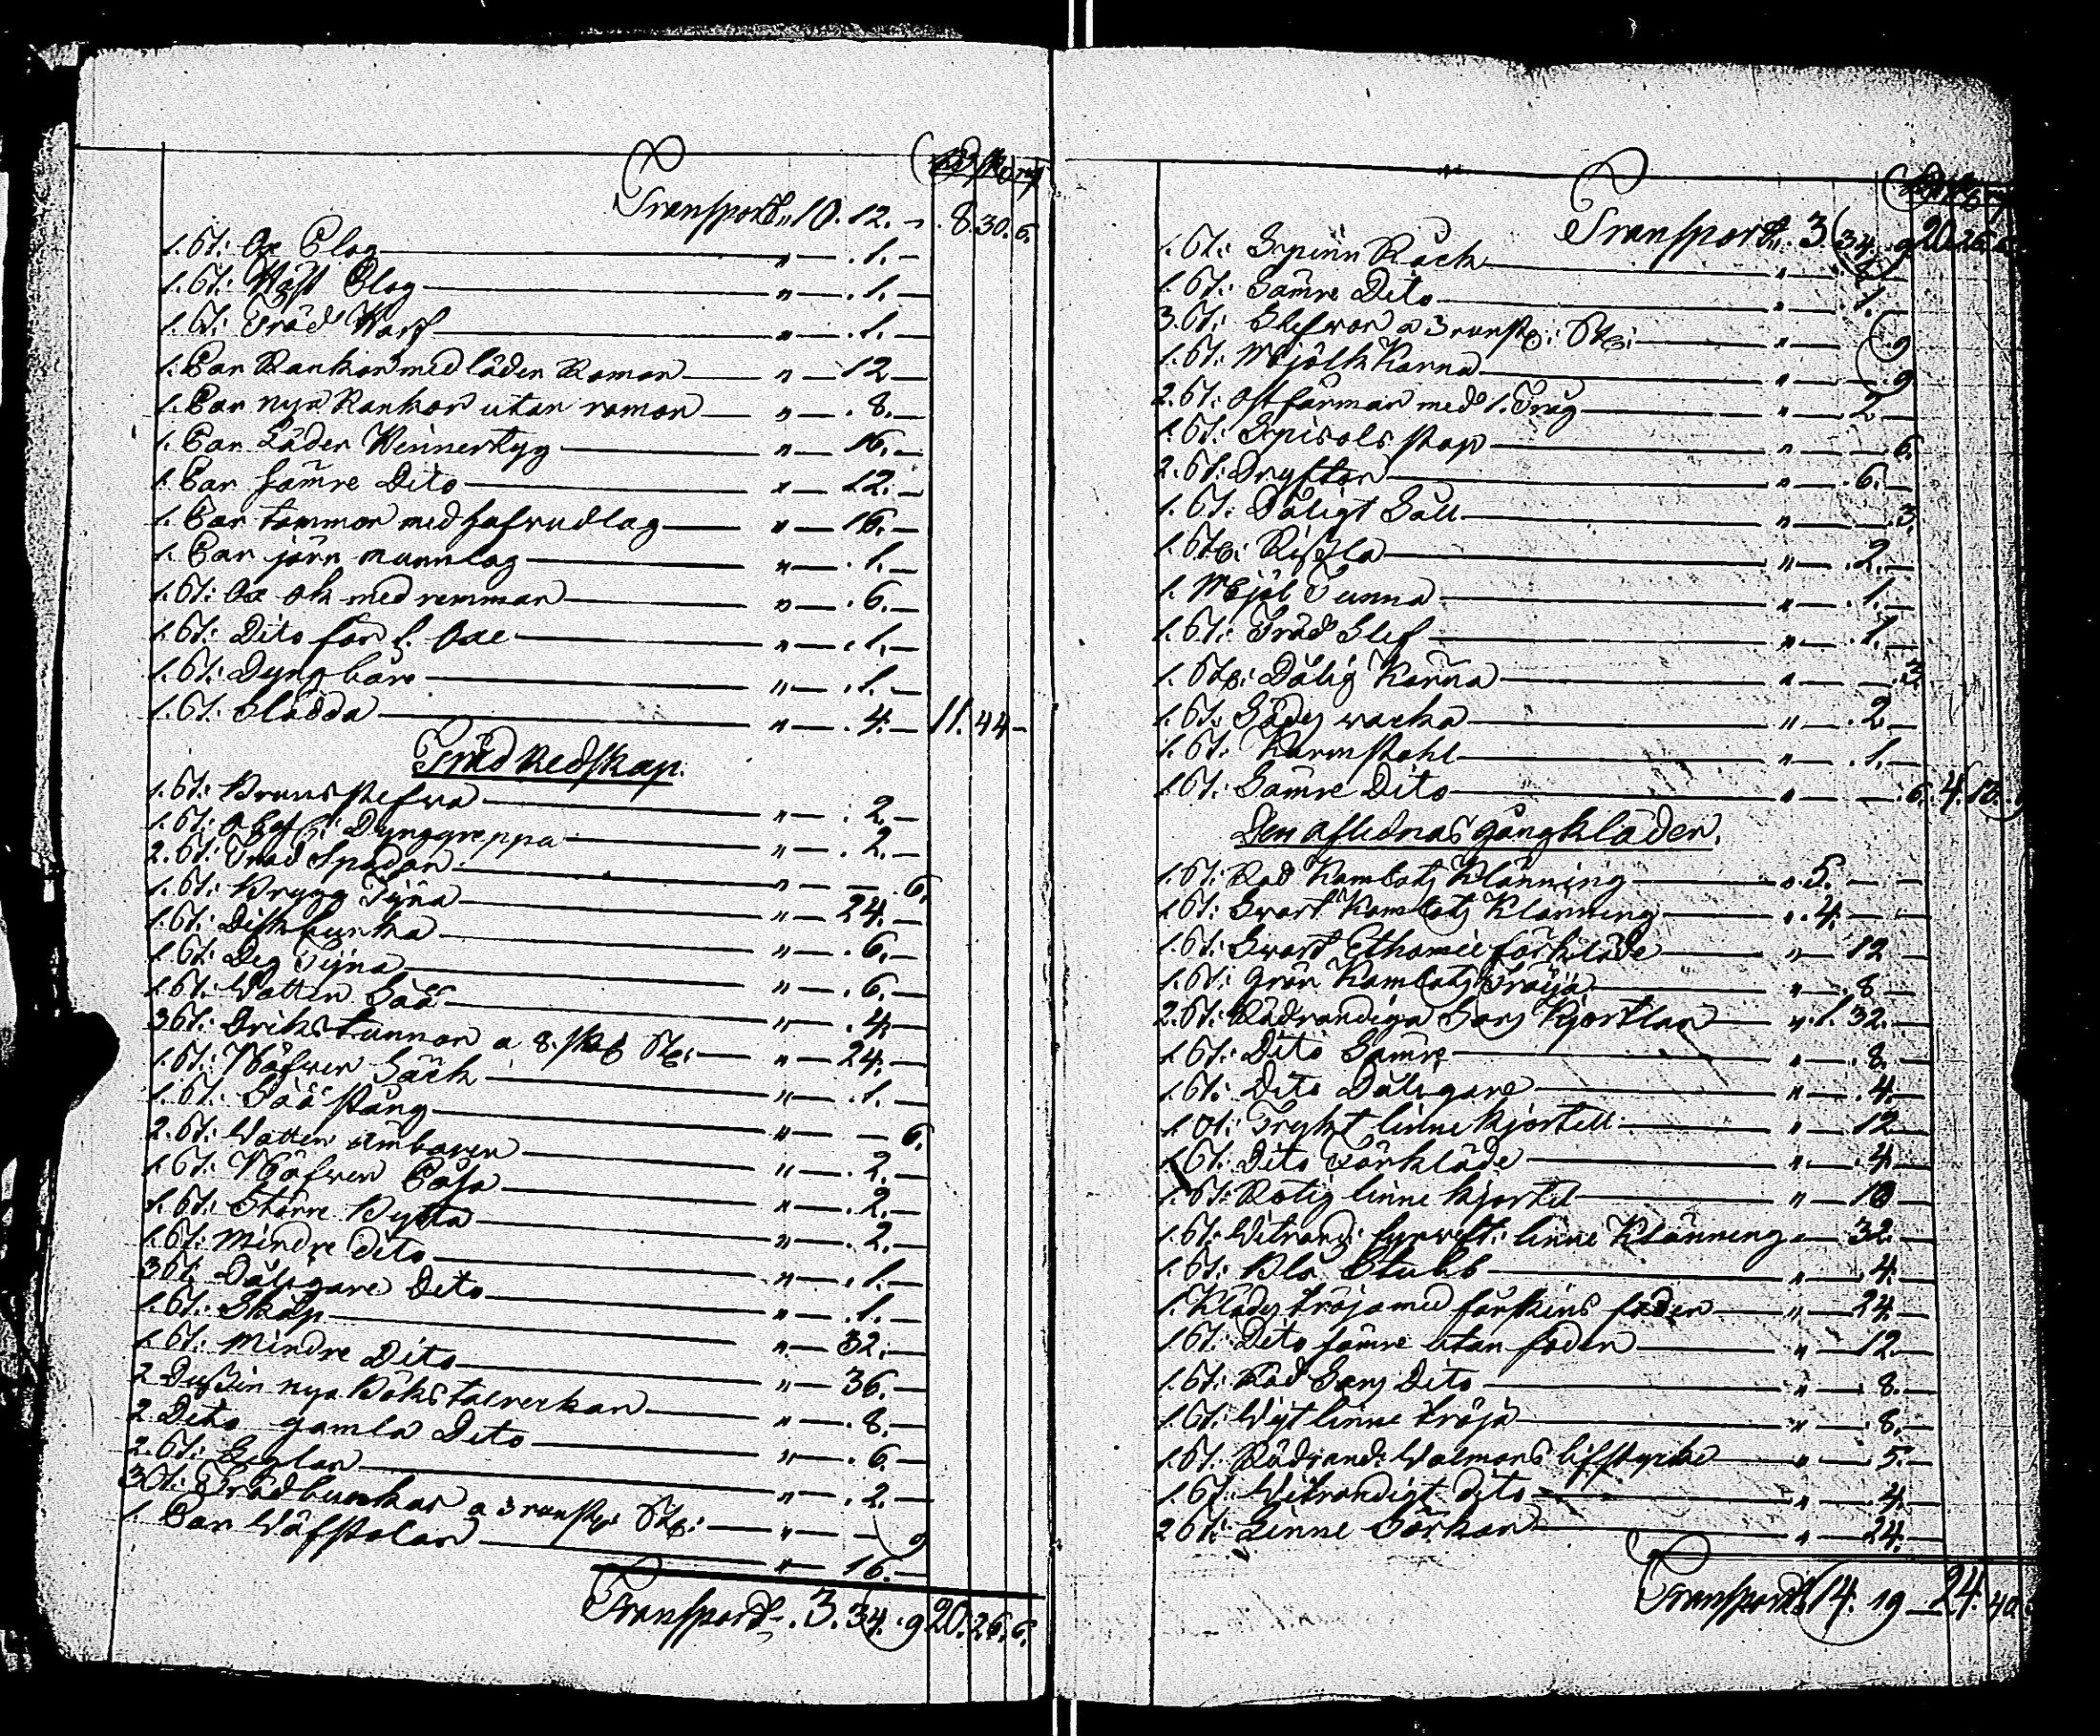 Transport „ 10. 12. – 8. 30. 6.
1. St: Ox Plog „ — . 1. —
1. St: Häst Plog „ — . 1. —
1. St: Träd Harf „ — . 1. —
1. Par Rankor med läder Romor „ — 12 —
1. Par nya Rankor utan romor „ — . 8. —
1. Par Läder Winnertyg „ — 16. —
1. Par sämre Dito „ — 12. —
1. Par tömmor med hufwudlag „ — 16. —
1. Par järn munnlag „ — . 1. —
1. St: Ox ok med remmar „ — . 6. —
1. St: Dito för 1. Oxe „ — . 1. —
1. St: Dyngbåre „ — . 1. —
1. St: Slädda „ — . 4. — 11. 44 –
Träd Redskap.
1. St: Brunsstefwa „ — . 2. —
1. St: Dynggreppa „ — . 2. —
2. St: Träd Spadar „ — — . 6.
1. St: Brygg Tyna „ — 24. —
1. St: Diskbunka „ — . 6. —
1. St: Deg Tyna „ — . 6. —
1. St: Watten Såå „ — . 4. —
3 St: Drikstunnor a 8. sk St: „ — 24. —
1. St: Näfwer Säck „ — . 1. —
1. St: Såå stång „ — — 6.
2. St: Watten ämbaren „ — . 2. —
1. St: Näfwer Påsa „ — . 2. —
1. St: Större Bytta „ — . 2. —
1. St: Mindre dito „ — . 1. —
3 St: Dåligare Dito „ — . 1. —
1. St: Skåp „ — 32. —
1. St: Mindre Dito „ — 36. —
2 Dussin nya Bökstalrerkar „ — . 8. —
2 Dito gamla Dito „ — . 6. —
2. St: Leglar „ — . 2. —
3 St: Trädbunkar a 3 runst: St: „ — — 9
1. Par Wäfstolar „ — 16. —
Transport „ . 3. 34. . 9 20. 26. 6.
Transport „ . 3. 34. . 9 20. 26. 6
1. St: Spinn Råck „ —
1. St: Sämre Dito „ — . 1. —
3. St: Slefwar a 3 runst: St: „ — — 9
1. St: Mjölk Kärna „ — — . 9
2. St: Ostformar med 1. Tråg „ — . 2 —
1. St: Spisöls stop „ — — 6.
2. St: Dryftor „ — . 6. —
1. St: Dåligt Såll „ — — . 3.
1. St: Rissla „ — . 2. —
1. Mjöl Tunna „ — . 1. —
1. St: Träd Slef „ — . 1. —
1. St: Dålig Kärna „ — — . 3.
1. St: Sädes wacka „ — . 2. —
1. St: Karmstohl „ — . 1. —
1. St: Sämre Dito „ — — . 6. 4. 13.
Den aflednas gångkläder.
1. St: Röd Kamlots Klänning „ 5. — —
1 St: Swart Kamlots Klänning „ . 4. — —
1. St: Swart Ethamie förkläde „ — 12 —
1. St: Grön Kamlots Tröija „ — . 8 —
2. St: Rödrandiga Sars Kjortlar „ . 1. 32. —
1. St: Dito Sämre „ — . 8. —
1. St: Dito Dåligare „ — . 4. —
1. St: Tryckt linne kjortell „ — 12 —
1. St: Dito Förkläde „ — . 4 —
1. St: Rotig linne kjortel „ — 10 —
1. St: linne Klänning „ — 32. —
1. St: Blå Stubb „ — . 4. —
1. Klädes tröja med fårskins foder „ — 24. —
1 St: Dito sämre utan foder „ — 12. —
1. St: Röd Sars Dito „ — . 8. —
1. St: Wijt linne tröja „ — . 8. —
1. St: Rödrand: Walmars lifstycke „ — 5. —
1. St: Witrandigt Dito „ — . 4. —
2 St: Linne Särkar „ — 24. —
Transport 14. 19 — 24. 40.